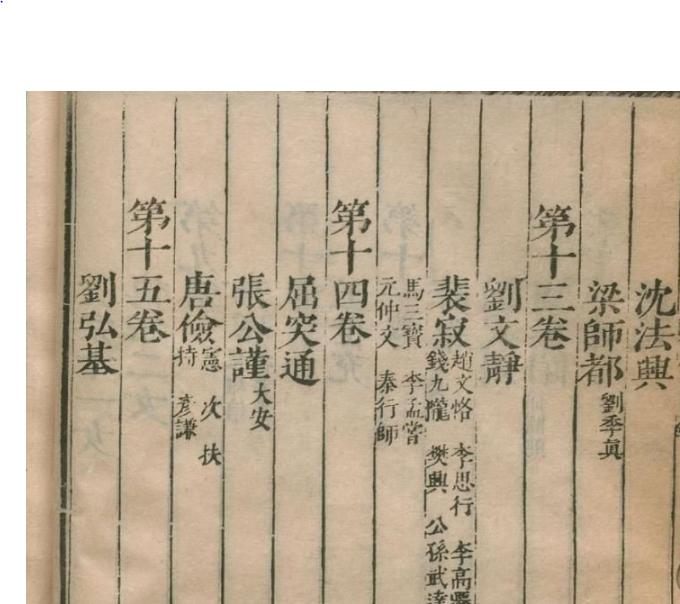 沈法興
梁師都 劉季真
第十三卷
劉文靜
裴寂 趙文恪 李思行 李高
錢九隴 樊興 公孫武達
馬三寶 李孟嘗
元仲文 秦行師
第十四卷
屈突通
張公謹 大安
唐儉 憲 次 扶
持 彦謙
第十五卷
劉弘基